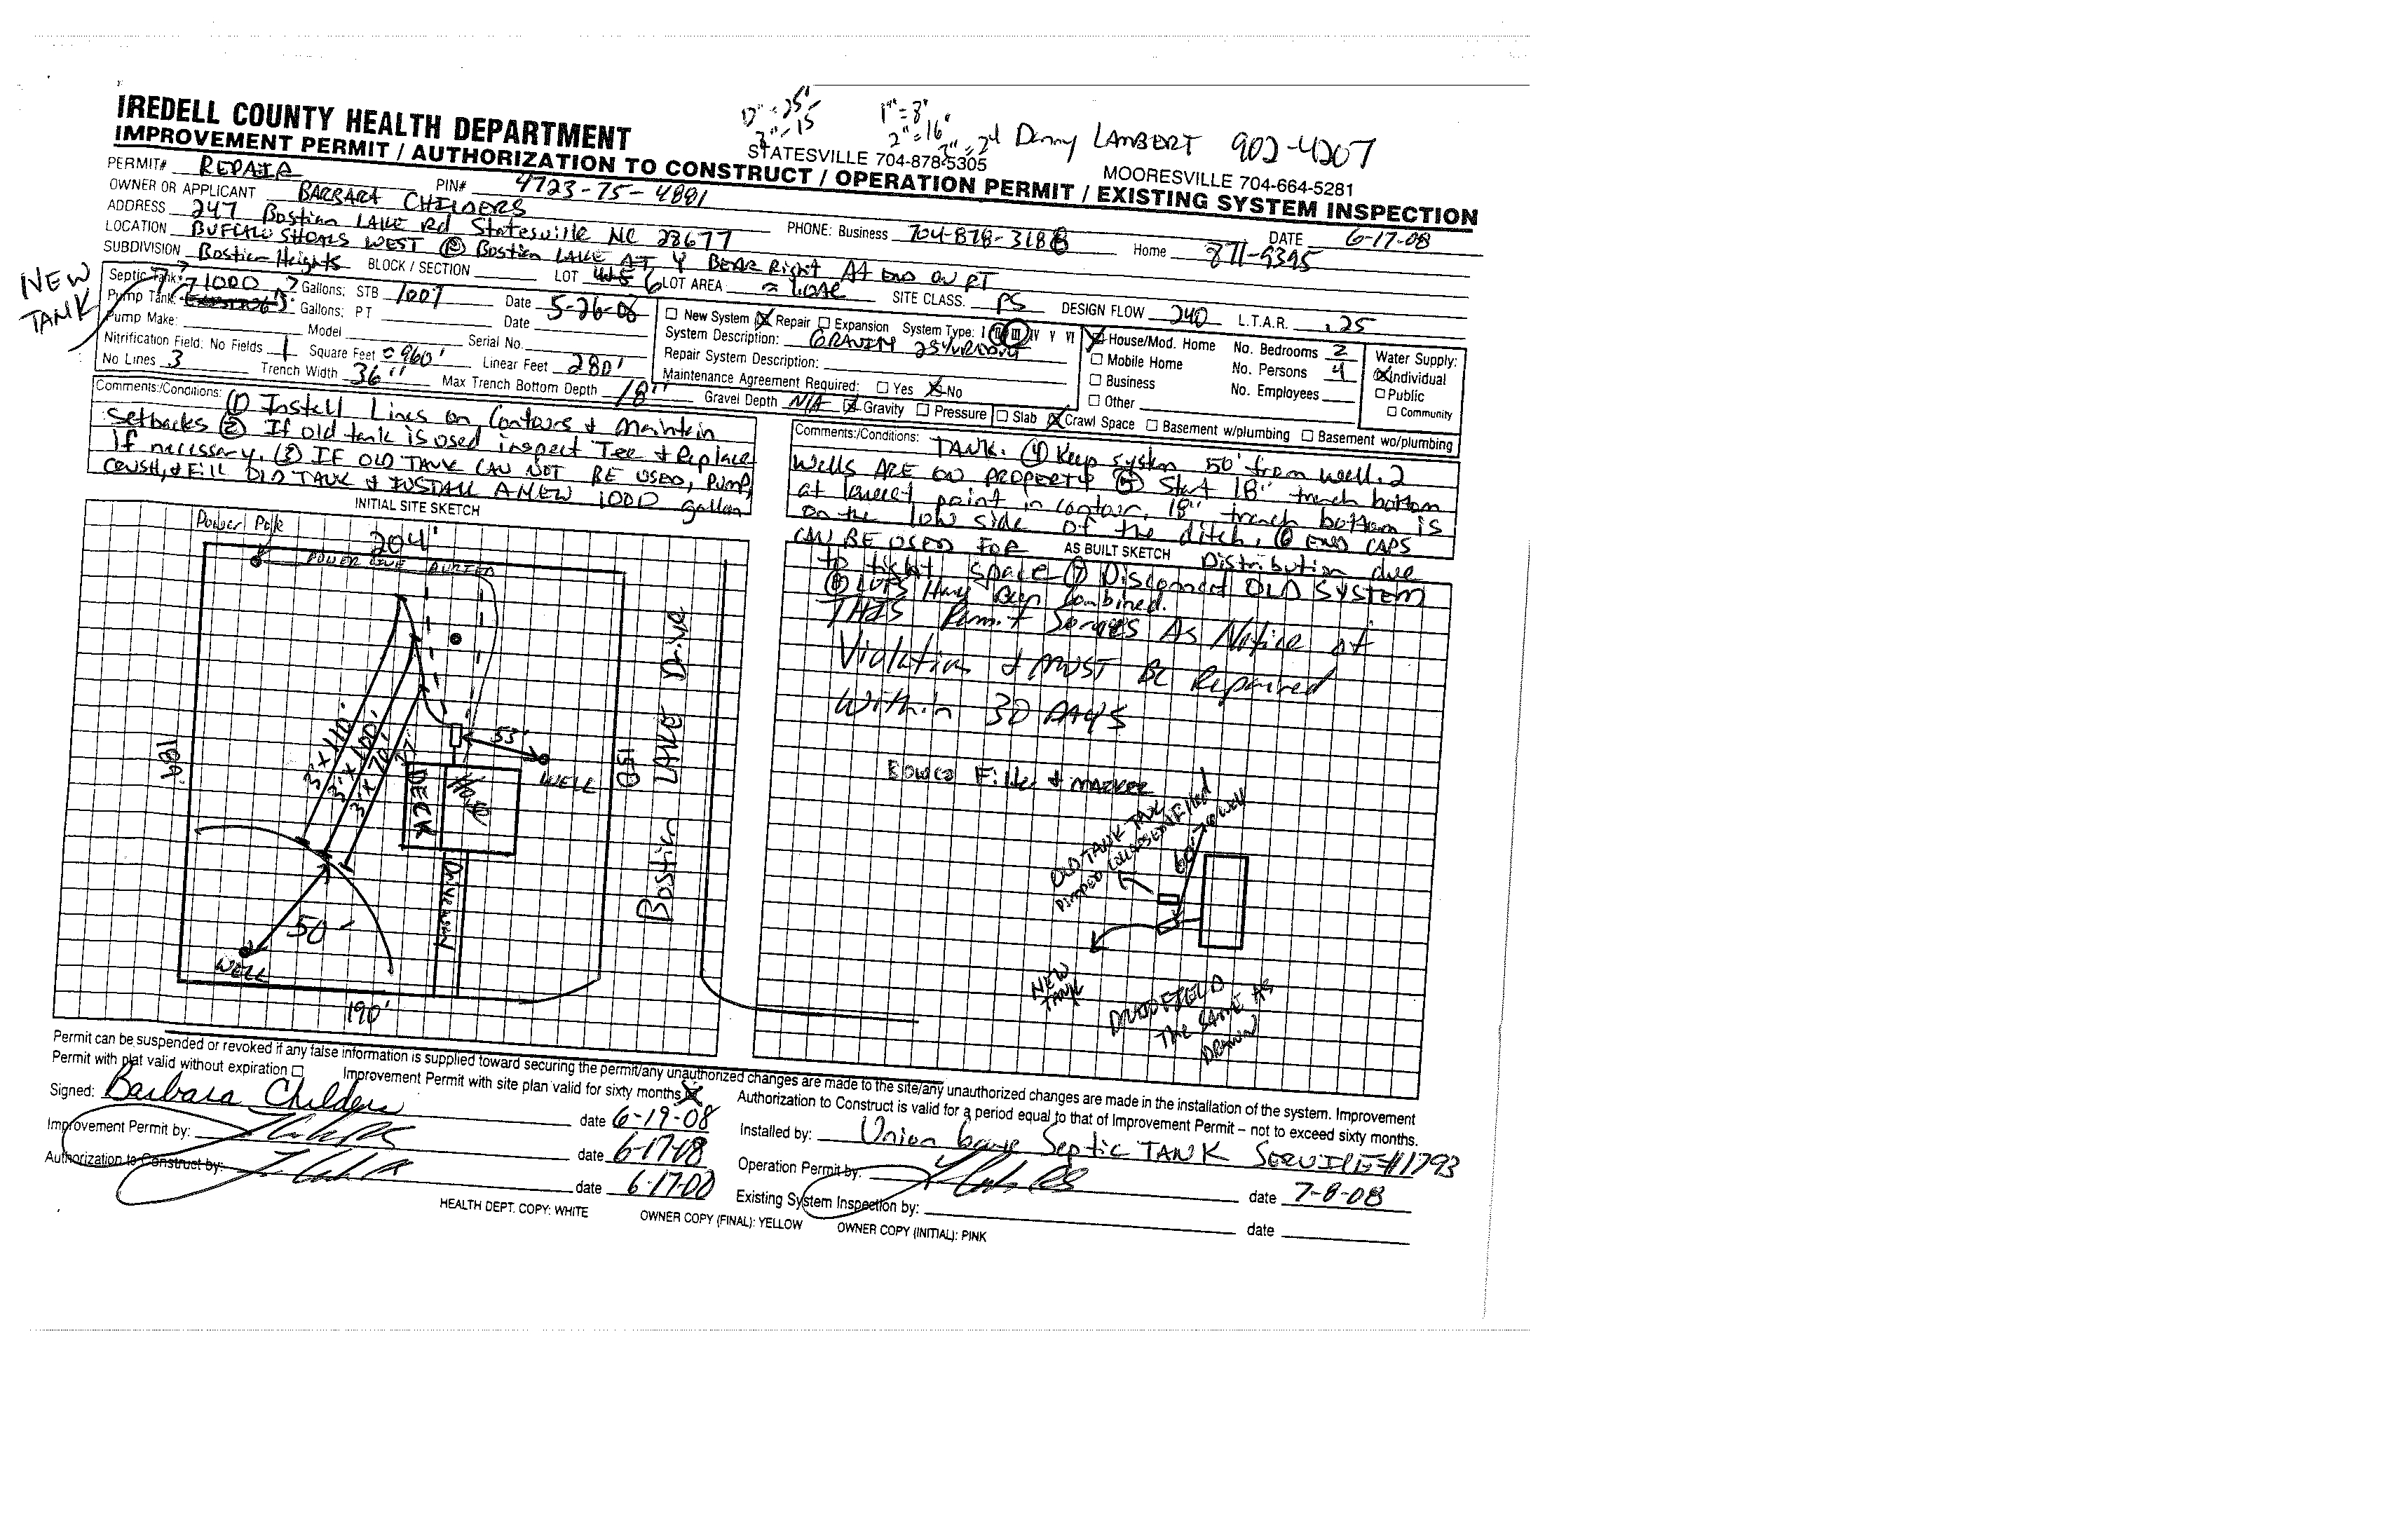 D" = 25'
3" = 15
1" = 8'
2" = 16'
3" = 24
Denny LAMBERT 902-4207
IREDELL COUNTY HEALTH DEPARTMENT
STATESVILLE 704-878-5305 MOORESVILLE 704-664-5281
IMPROVEMENT PERMIT / AUTHORIZATION TO CONSTRUCT / OPERATION PERMIT / EXISTING SYSTEM INSPECTION
PERMIT# REPAIR PIN# 4723-75-4881 DATE 6-17-08
OWNER OR APPLICANT BARBARA CHILDERS PHONE: Business 704-878-3188 Home 871-9395
ADDRESS 247 Bostian LAKE Rd Statesville NC 28677
LOCATION BUFFALO SHOALS WEST (R) Bostian LAKE AT Y BEAR Right AT END ON RT
SUBDIVISION Bostian Heights BLOCK / SECTION LOT 6 LOT AREA SITE CLASS. PS DESIGN FLOW 240 L.T.A.R. .25
NEW TANK
Septic Tank: 1000 Gallons; STB 1007 Date 5-26-08
Pump Tank: Gallons; PT Date
Pump Make: Model Serial No.
Nitrification Field: No Fields 1 Square Feet = 960' Linear Feet 280'
No Lines 3 Trench Width 36" Max Trench Bottom Depth 18" Gravel Depth N/A Gravity Pressure
New System Repair Expansion System Type: I II III IV V VI
System Description: GRAVITY 25%
Repair System Description:
Maintenance Agreement Required: Yes No
Slab Crawl Space Basement w/plumbing Basement wo/plumbing
House/Mod. Home No. Bedrooms 2
Mobile Home No. Persons 4
Business No. Employees
Other
Water Supply:
Individual
Public
Community
Comments:/Conditions: (1) Install Lines on Contours & Maintain
Setbacks (2) If old tank is used inspect Tee & Replace
If necessary. (3) IF OLD TANK CAN NOT BE USED, PUMP,
CRUSH, & FILL OLD TANK & INSTALL A NEW 1000 gallon
Comments:/Conditions: TANK. (4) Keep system 50' from well. 2
Wells ARE ON PROPERTY (5) Start 18" trench bottom
at lowest point in contour. 18" trench bottom is
on the low side of the ditch. (6) END CAPS
CAN BE USED FOR Distribution due
to tight space (7) Disconnect OLD SYSTEM
(8) LOTS Have Been Combined.
THIS Permit Serves As Notice of
Violation & MUST BE Repaired
Within 30 DAYS
INITIAL SITE SKETCH
Power Pole
204'
POWER LINE BURIED
3'x110'
3'x100'
3'x70'
189'
53'
WELL
DECK
House
Driveway
150
Bostian LAKE Drive
50'
WELL
190'
AS BUILT SKETCH
Filter & MARKER
OLD TANK
PUMPED COLLAPSED & Filled
60' to well
NEW TANK
THE SAME AS
DRAWN
Permit can be suspended or revoked if any false information is supplied toward securing the permit/any unauthorized changes are made to the site/any unauthorized changes are made in the installation of the system. Improvement
Permit with plat valid without expiration Improvement Permit with site plan valid for sixty months Authorization to Construct is valid for a period equal to that of Improvement Permit – not to exceed sixty months.
Signed: Barbara Childers date 6-19-08
Improvement Permit by: date 6-17-08
Authorization to Construct by: date 6-17-08
Installed by: Union Grove Septic TANK SERVICE #11793
Operation Permit by: date 7-8-08
Existing System Inspection by: date
HEALTH DEPT. COPY: WHITE OWNER COPY (FINAL): YELLOW OWNER COPY (INITIAL): PINK